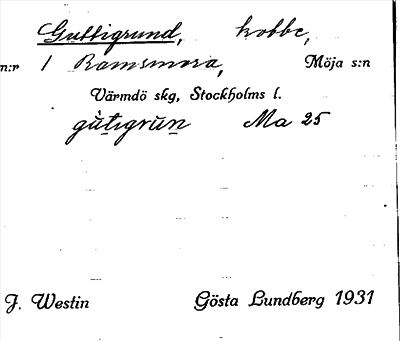 Guttigrund, kobbe,
n:r 1 Ramsmora, Möja s:n
Värmdö skg, Stockholms l.
gùtıgrūn Ma 25
J. Westin Gösta Lundberg 1931